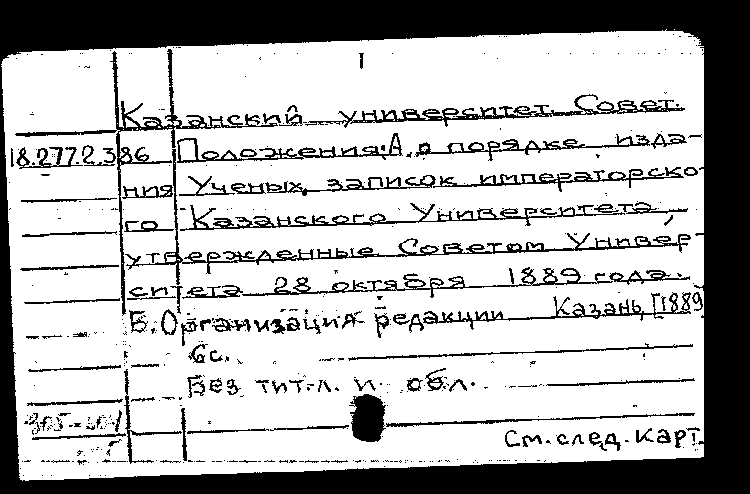 I
Казанский университет. Совет.
18.277.2.386 Положения: А. о порядке изда-
ния Ученых записок императорско-
го Казанского Университета,
утвержденные Советом Универ-
ситета 28 октября 1889 года.
Б. Организация редакции Казань, [1889]
6с.
Без тит. л. и обл.
См. след. карт.